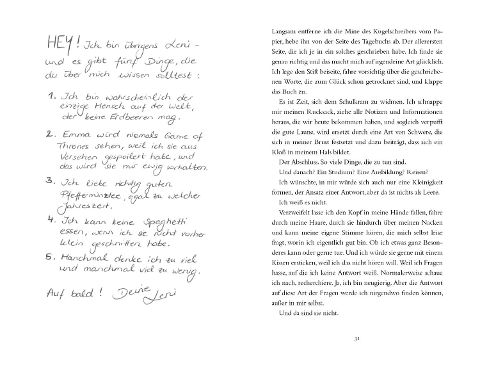 HEY! Ich bin übrigens Leni -
und es gibt fünf Dinge, die
du über mich wissen solltest:
1. Ich bin wahrscheinlich der
einzige Mensch auf der Welt,
der keine Erdbeeren mag.
2. Emma wird niemals Game of
Thrones sehen, weil ich sie aus
Versehen gespoilert habe, und
das wird sie mir ewig vorhalten.
3. Ich liebe richtig guten
Pfefferminztee, egal zu welcher
Jahreszeit.
4. Ich kann keine Spaghetti
essen, wenn ich sie nicht vorher
klein geschnitten habe.
5. Manchmal denke ich zu viel
und manchmal viel zu wenig.
Auf bald! Deine Leni
Langsam entferne ich die Mine des Kugelschreibers vom Pa-
pier, hebe ihn von der Seite des Tagebuchs ab. Der allerersten
Seite, die ich je in ein solches geschrieben habe. Ich finde sie
genau richtig und das macht mich auf irgendeine Art glücklich.
Ich lege den Stift beiseite, fahre vorsichtig über die geschriebe-
nen Worte, die zum Glück schon getrocknet sind, und klappe
das Buch zu.
Es ist Zeit, sich dem Schulkram zu widmen. Ich schnappe
mir meinen Rucksack, ziehe alle Notizen und Informationen
heraus, die wir heute bekommen haben, und sogleich verpufft
die gute Laune, wird ersetzt durch eine Art von Schwere, die
sich in meiner Brust festsetzt und dazu beiträgt, dass sich ein
Kloß in meinem Hals bildet.
Der Abschluss. So viele Dinge, die zu tun sind.
Und danach? Ein Studium? Eine Ausbildung? Reisen?
Ich wünschte, in mir würde sich auch nur eine Kleinigkeit
formen, der Ansatz einer Antwort, aber da ist nichts als Leere.
Ich weiß es nicht.
Verzweifelt lasse ich den Kopf in meine Hände fallen, fahre
durch meine Haare, durch sie hindurch über meinen Nacken
und kann meine eigene Stimme hören, die mich selbst leise
fragt, worin ich eigentlich gut bin. Ob ich etwas ganz Beson-
deres kann oder gerne tue. Und ich würde sie gerne mit einem
Kissen ersticken, weil ich das nicht hören will. Weil ich Fragen
hasse, auf die ich keine Antwort weiß. Normalerweise schaue
ich nach, recherchiere. Ja, ich bin neugierig. Aber die Antwort
auf diese Art der Fragen werde ich nirgendwo finden können,
außer in mir selbst.
Und da sind sie nicht.
31